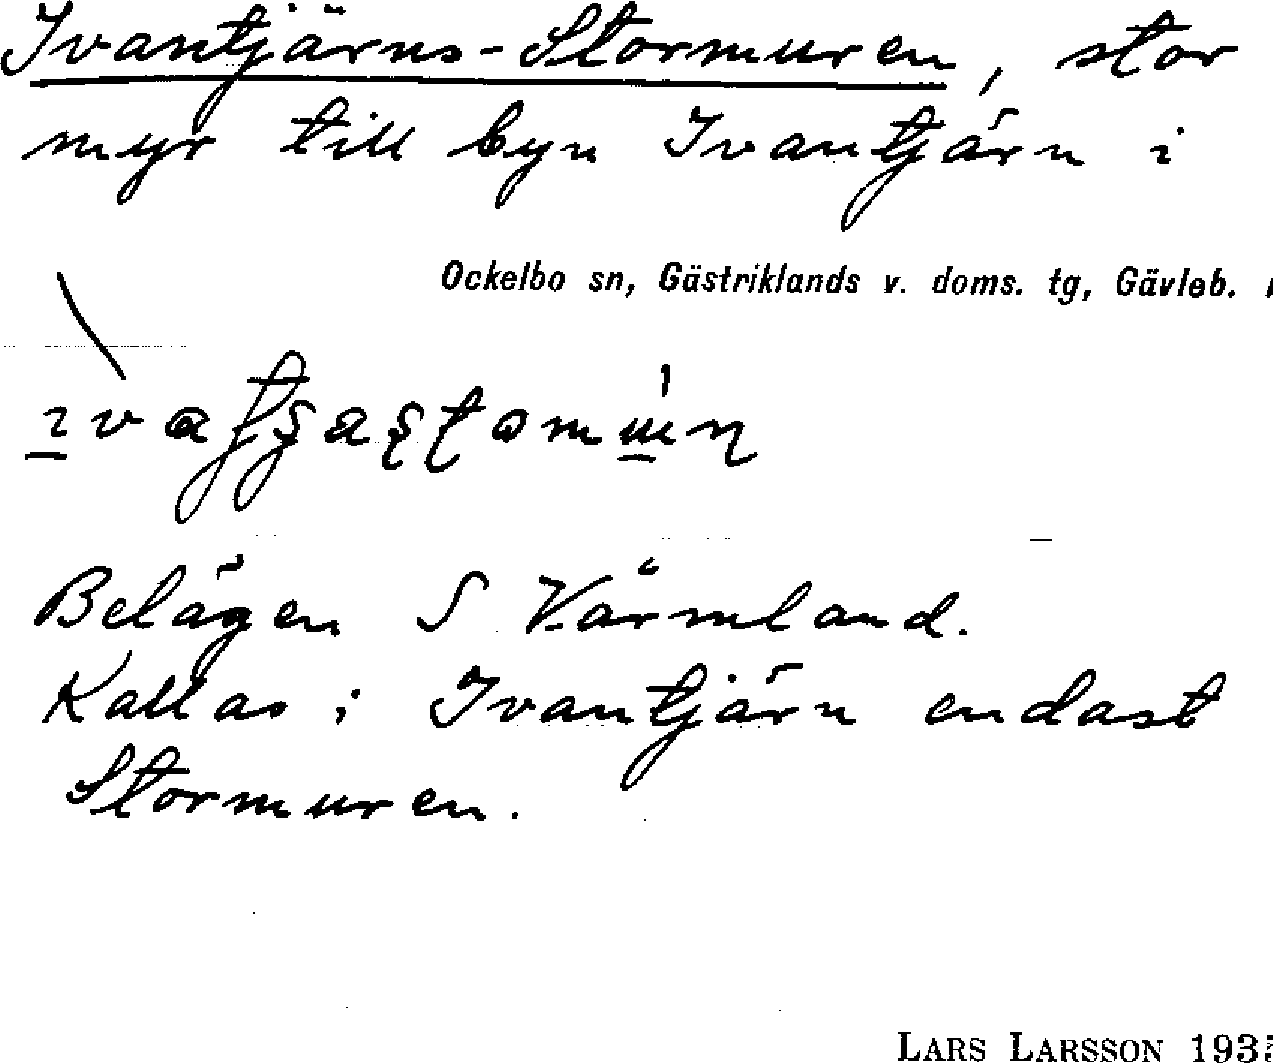 Ivantjärns-Stormuren, stor
myr till byn Ivantjärn i
Ockelbo sn, Gästriklands v. doms. tg, Gävleb.
Belägen S Värmland.
Kallas i Ivantjärn endast
Stormuren.
LARS LARSSON